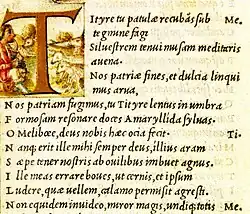 Ityre tu patulæ recubãs sub Me.
tegmine fagi
Siluestrem tenui musam meditaris
auena.
Nos patriæ fines, et dulcia linqui
mus arua,
Nos patriam fugimus, tu Tityre lentus in umbra
Formosam resonare doces Amaryllida syluas.
O Melibœe, deus nobis hæc ocia fecit. Ti.
Nanq; erit ille mihi semper deus, illius aram
Sæpe tener nostris ab ouilibus imbuet agnus.
Ille meas errare boues, ut cernis, et ipsum
Ludere, quæ uellem, calamo permisit agresti.
Non equidem inuideo, miror magis, undiq; totis Me.